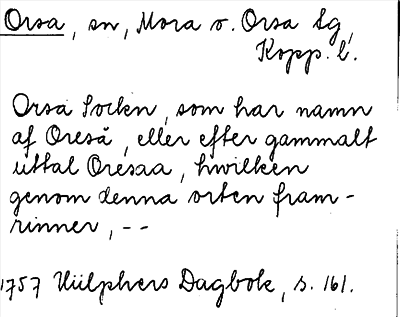 Orsa, sn, Mora o. Orsa tg,
Kopp. l.
Orsa Socken, som har namn
af Oreså, eller efter gammalt
uttal Oresaa, hwilken
genom denna orten fram-
rinner, --
1757 Hülphers Dagbok, s. 161.